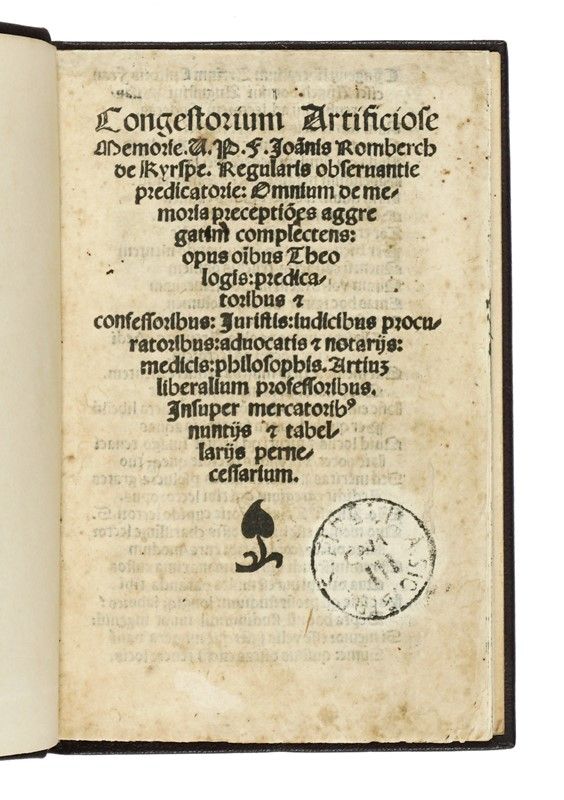 Congestorium Artificiose
Memorie. V. P. F. Joānis Romberch
de Kyrspe. Regularis obseruantie
predicatorie: Omnium de me-
moria preceptiōes aggre
gatim complectens:
opus oībus Theo
logis: predica-
toribus ⁊
confessoribus: Juristis: iudicibus procu-
ratoribus: aduocatis ⁊ notarijs:
medicis: philosophis. Artiuꝫ
liberalium professoribus.
Insuper mercatoribꝰ
nuntijs ⁊ tabel-
larijs perne-
cessarium.